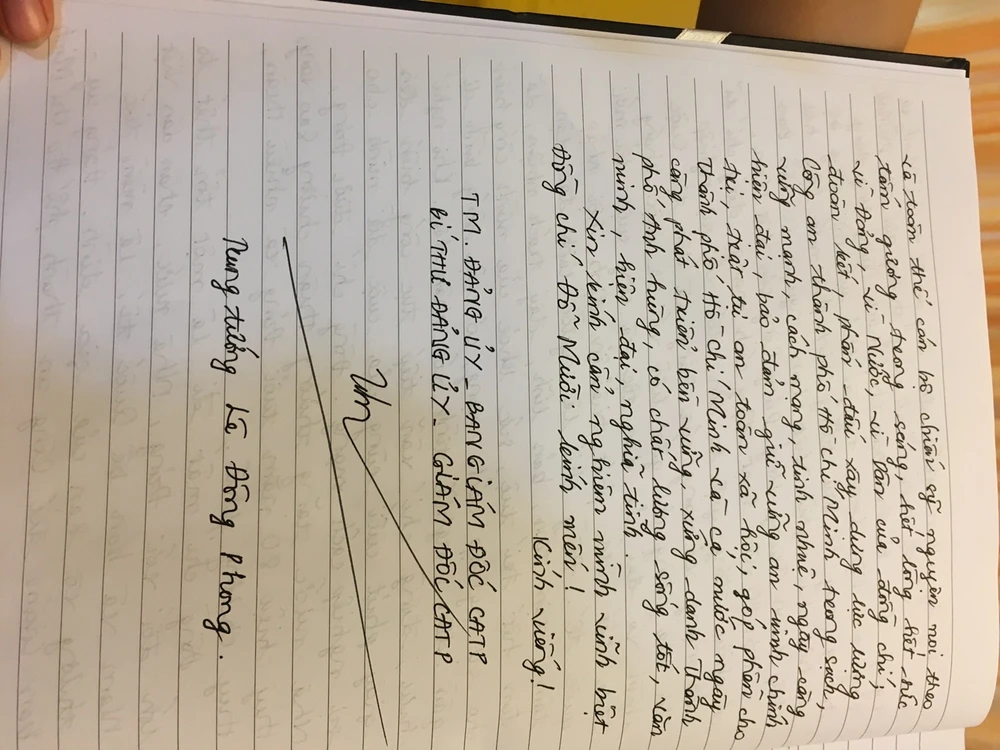 và toàn thể cán bộ chiến sỹ nguyện noi theo
tấm gương trong sáng, hết lòng hết sức
vì Đảng, vì Nước, vì Dân của đồng chí;
đoàn kết, phấn đấu xây dựng lực lượng
Công an thành phố Hồ Chí Minh trong sạch,
vững mạnh, cách mạng, tinh nhuệ, ngày càng
hiện đại, bảo đảm giữ vững an ninh chính
trị, trật tự an toàn xã hội, góp phần cho
Thành phố Hồ Chí Minh và cả nước ngày
càng phát triển bền vững, xứng danh Thành
phố Anh hùng, có chất lượng sống tốt, văn
minh, hiện đại, nghĩa tình.
Xin kính cẩn nghiêng mình vĩnh biệt
đồng chí Đỗ Mười kính mến!
Kính viếng!
TM. ĐẢNG ỦY - BAN GIÁM ĐỐC CATP
BÍ THƯ ĐẢNG ỦY - GIÁM ĐỐC CATP
Trung tướng Lê Đông Phong.